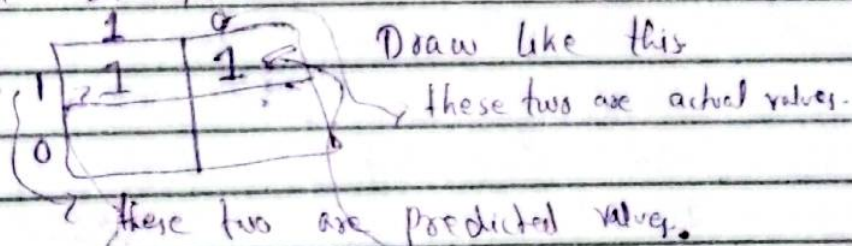 1 0
1 1 1
Draw like this
these two are actual values.
0
these two are Predicted values.